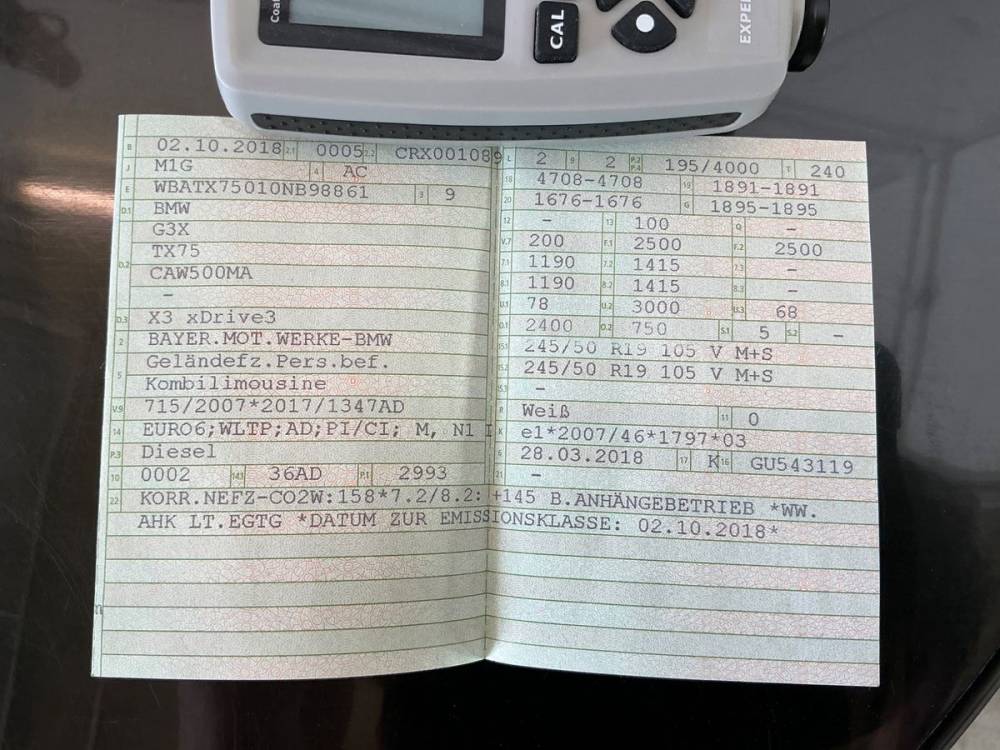 Coat
CAL
EXPE
B 02.10.2018 2.1 0005 2.2 CRX001089
J M1G 4 AC
E WBATX75010NB98861 3 9
D.1 BMW
G3X
D.2 TX75
CAW500MA
–
D.3 X3 xDrive3
2 BAYER.MOT.WERKE-BMW
5 Geländefz.Pers.bef.
Kombilimousine
V.9 715/2007*2017/1347AD
14 EURO6;WLTP;AD;PI/CI; M, N1 I
P.3 Diesel
10 0002 14.1 36AD P.1 2993
L 2 9 2 P.2 P.4 195/4000 T 240
18 4708-4708 19 1891-1891
20 1676-1676 G 1895-1895
12 – 13 100 Q –
V.7 200 F.1 2500 F.2 2500
7.1 1190 7.2 1415 7.3 –
8.1 1190 8.2 1415 8.3 –
U.1 78 U.2 3000 U.3 68
O.1 2400 O.2 750 S.1 5 S.2 –
15.1 245/50 R19 105 V M+S
15.2 245/50 R19 105 V M+S
15.3 –
R Weiß 11 0
K e1*2007/46*1797*03
6 28.03.2018 17 K 16 GU543119
21 –
22 KORR.NEFZ-CO2W:158*7.2/8.2:+145 B.ANHÄNGEBETRIEB *WW.
AHK LT.EGTG *DATUM ZUR EMISSIONSKLASSE: 02.10.2018*